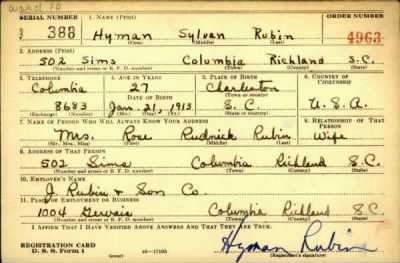 Ward 10
SERIAL NUMBER 1. NAME (Print) ORDER NUMBER
388 Hyman Sylvan Rubin 4963
(First) (Middle) (Last)
2. ADDRESS (Print)
502 Sims Columbia Richland S.C.
(Number and street or R. F. D. number) (Town) (County) (State)
3. TELEPHONE 4. AGE IN YEARS 5. PLACE OF BIRTH 6. COUNTRY OF CITIZENSHIP
Columbia 27 Charleston
DATE OF BIRTH (Town or county)
8683 Jan. 21, 1913 S.C. U.S.A.
(Exchange) (Number) (Mo.) (Day) (Yr.) (State or country)
7. NAME OF PERSON WHO WILL ALWAYS KNOW YOUR ADDRESS 8. RELATIONSHIP OF THAT PERSON
Mrs. Rose Rudnick Rubin Wife
(Mr., Mrs., Miss) (First) (Middle) (Last)
9. ADDRESS OF THAT PERSON
502 Sims Columbia Richland S.C.
(Number and street or R. F. D. number) (Town) (County) (State)
10. EMPLOYER'S NAME
J. Rubin & Son Co.
11. PLACE OF EMPLOYMENT OR BUSINESS
1004 Gervais Columbia Richland S.C.
(Number and street or R. F. D. number) (Town) (County) (State)
I AFFIRM THAT I HAVE VERIFIED ABOVE ANSWERS AND THAT THEY ARE TRUE.
Hyman Rubin
REGISTRATION CARD
D. S. S. FORM 1 (over) (Registrant's signature)